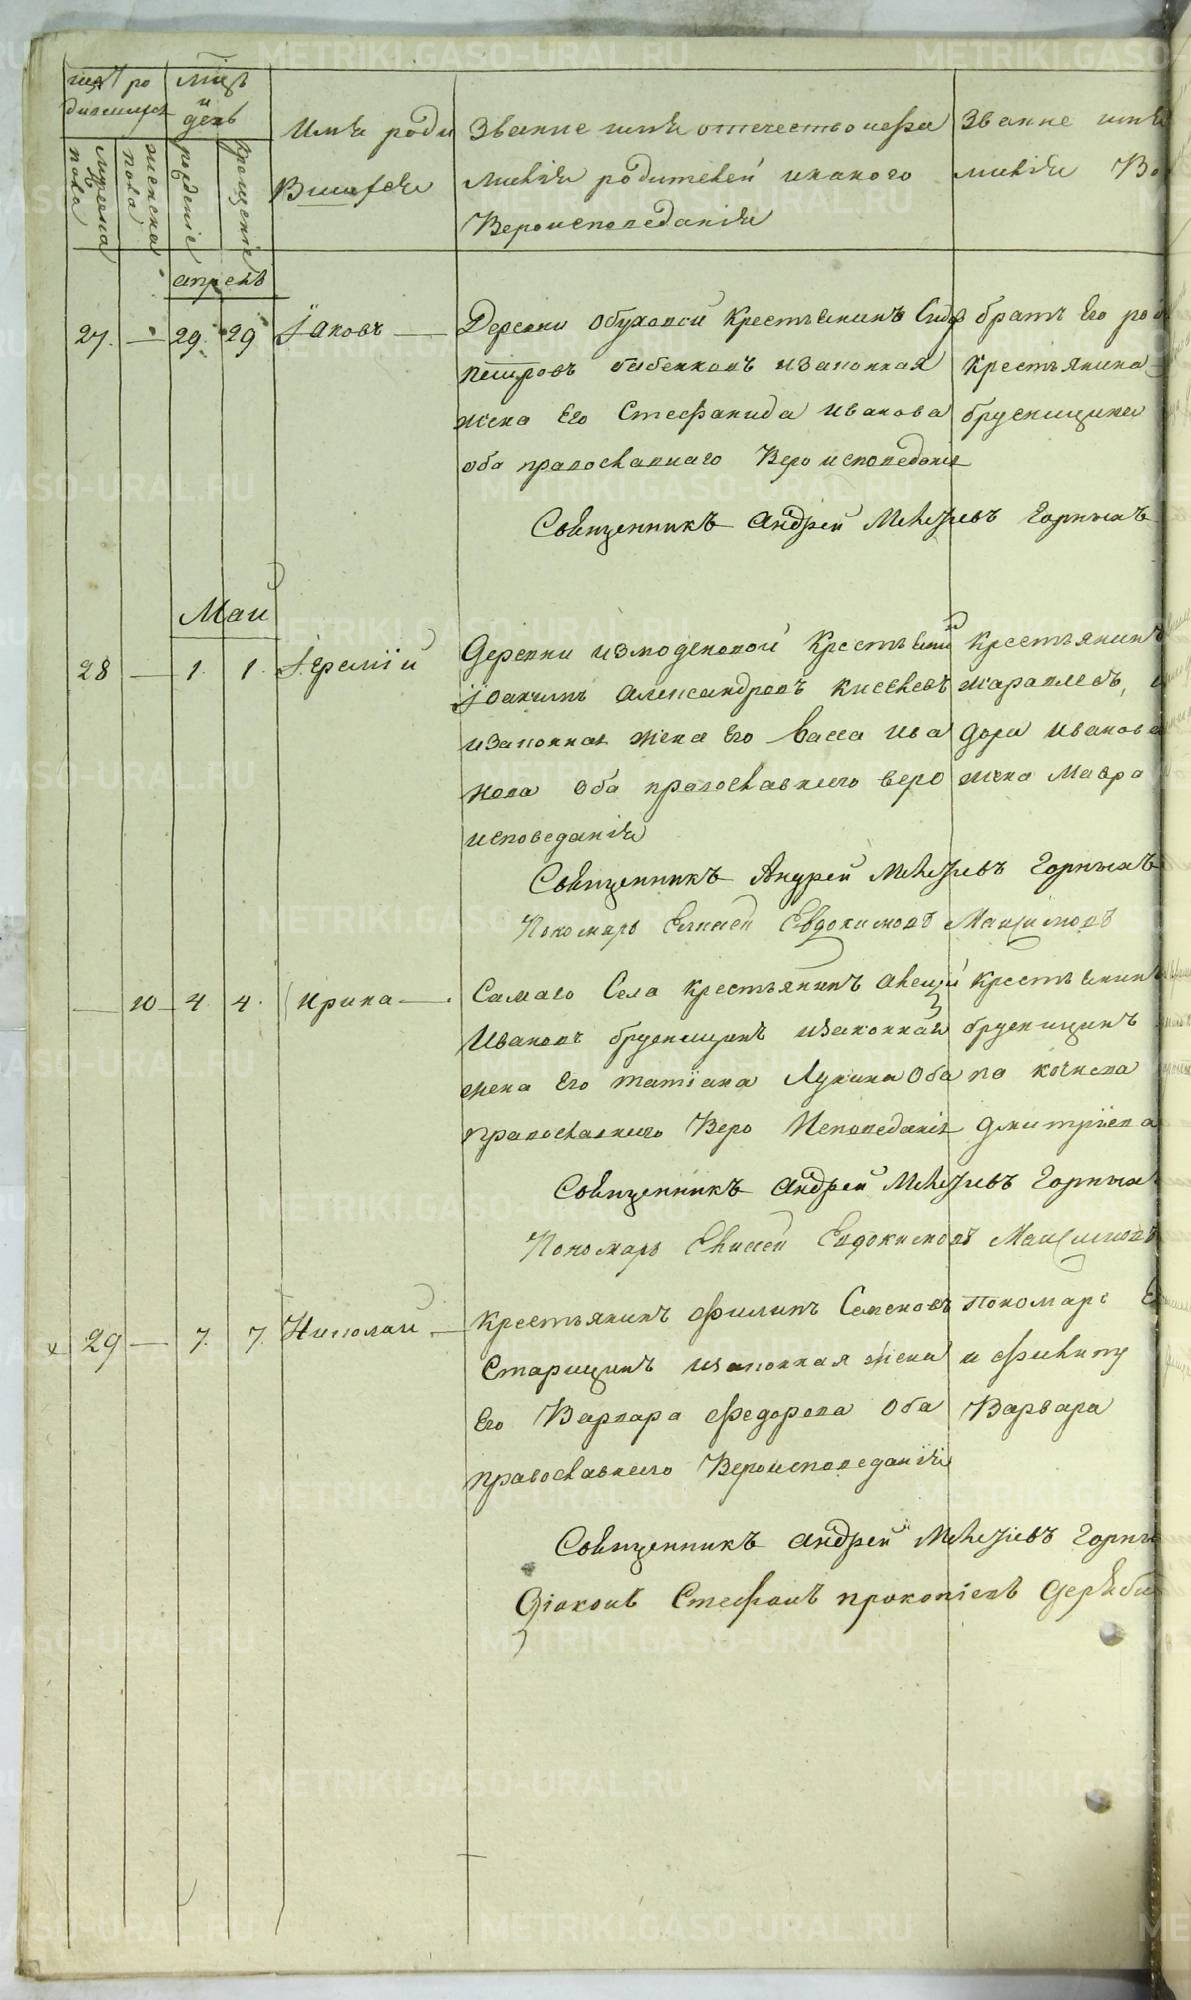 METRIKI.GASO-URAL.RU
мѣц
и
день
Имя роди
Вшагося
Званіе имя отечество и фа
милія родителей и какого
Вероисповеданія
Званіе имя
милія
мужеска пола
женска пола
рожденіе
крещеніе
апрель
27. — 29. 29 Іаковъ —
Деревни Обуховой Крестьянинъ Сидр
петровъ бабенковъ и законная
жена Его Стефанида иванова
оба православнаго Веро исповеданія
братъ Его род
Крестьянина
брусницына
Священникъ Андрей Горныхъ
Май
28 — 1. 1. Іеремій
деревни измоденовой Крестьянин
Іоакимъ Александровъ Киселевъ
и законная жена Его Васса Ива
нова Оба православнаго веро
исповеданія
Крестьянинъ
дора иванова
жена Мавра
Священникъ Андрей Горныхъ
Пономарь Елисей Евдокимовъ Максимовъ
— 10 4 4. Ирина —
Самаго Села крестьянинъ
Ивановъ брусницынъ и законная
жена Его татіана Лукина Оба
православнаго Веро Исповеданія
Крестьянинъ
брусницынъ
дмитріева
Священникъ Андрей Горныхъ
Пономарь Елисей Евдокимовъ Максимовъ
х 29 — 7. 7. Николай —
Крестьянинъ Филипъ Семеновъ
Старицынъ и законная жена
Его Варвара Федорова Оба
православнаго Вероисповеданія
Пономарь Е
Варвара
Священникъ Андрей Горны
Діаконъ Стефанъ прокопіевъ Деряби